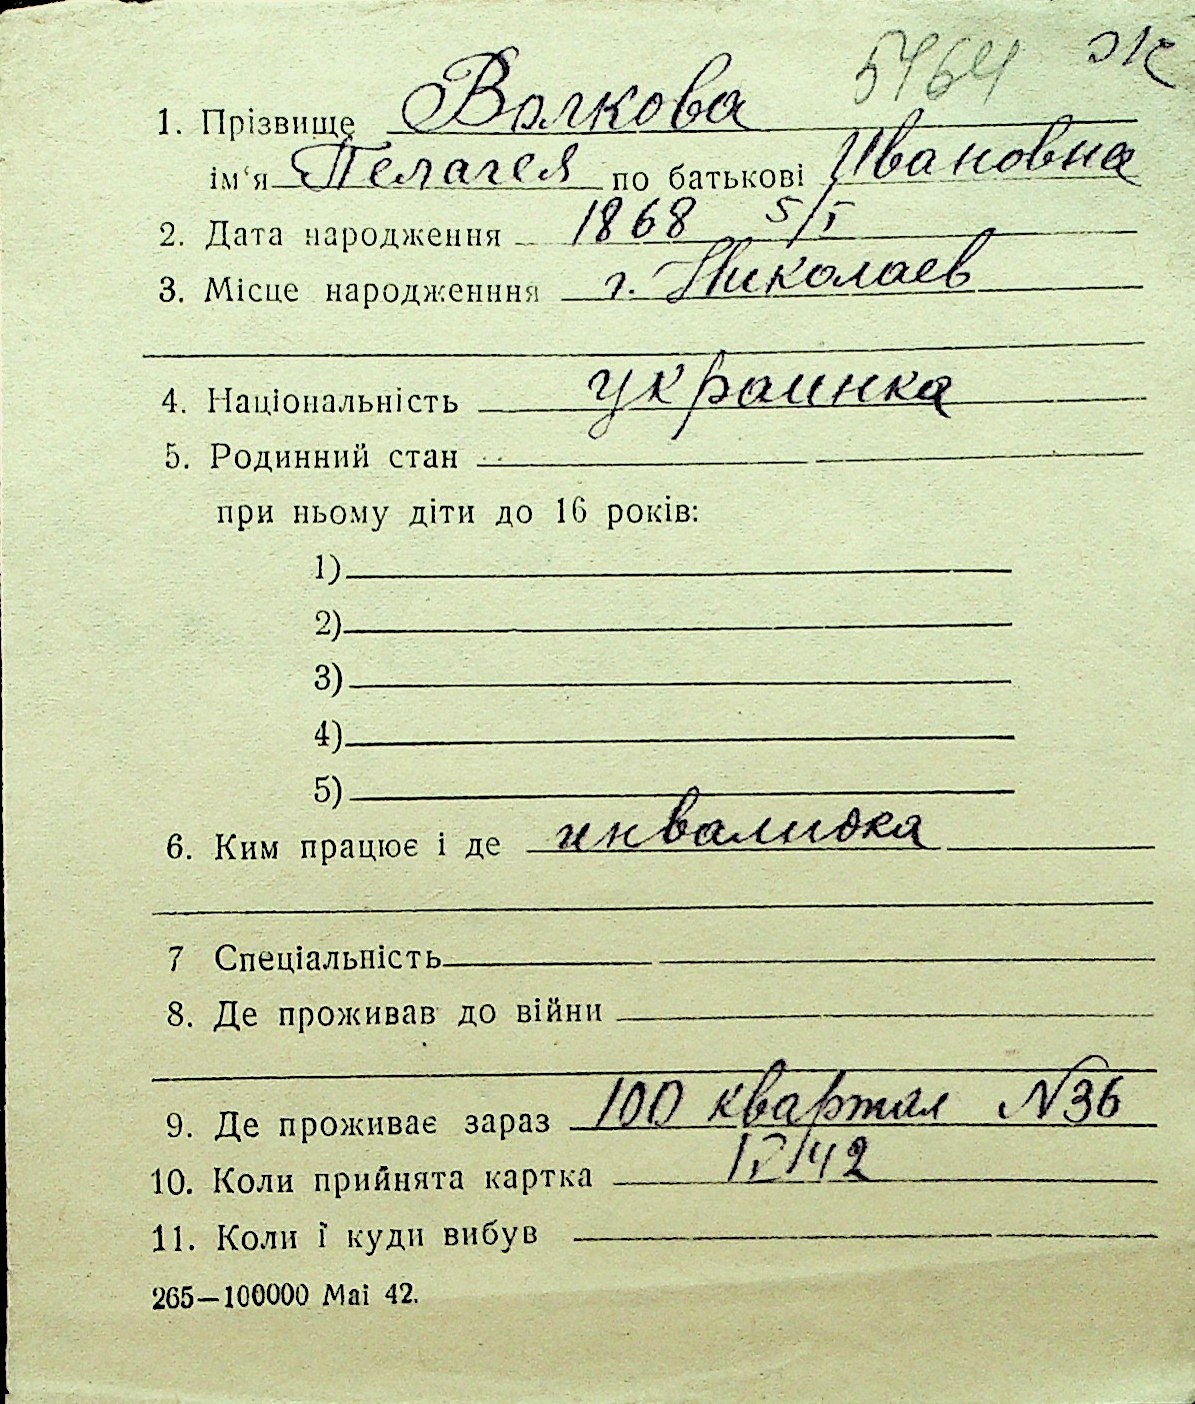 5464 ж
1. Прізвище Волкова
ім'я Пелагея по батькові Ивановна
2. Дата народження 1868 5/I
3. Місце народженння г. Николаев
4. Національність украинка
5. Родинний стан
при ньому діти до 16 років:
1)
2)
3)
4)
5)
6. Ким працює і де инвалидка
7 Спеціальність
8. Де проживав до війни
9. Де проживає зараз 100 квартал №36
10. Коли прийнята картка
11. Коли ї куди вибув
265—100000 Mai 42.